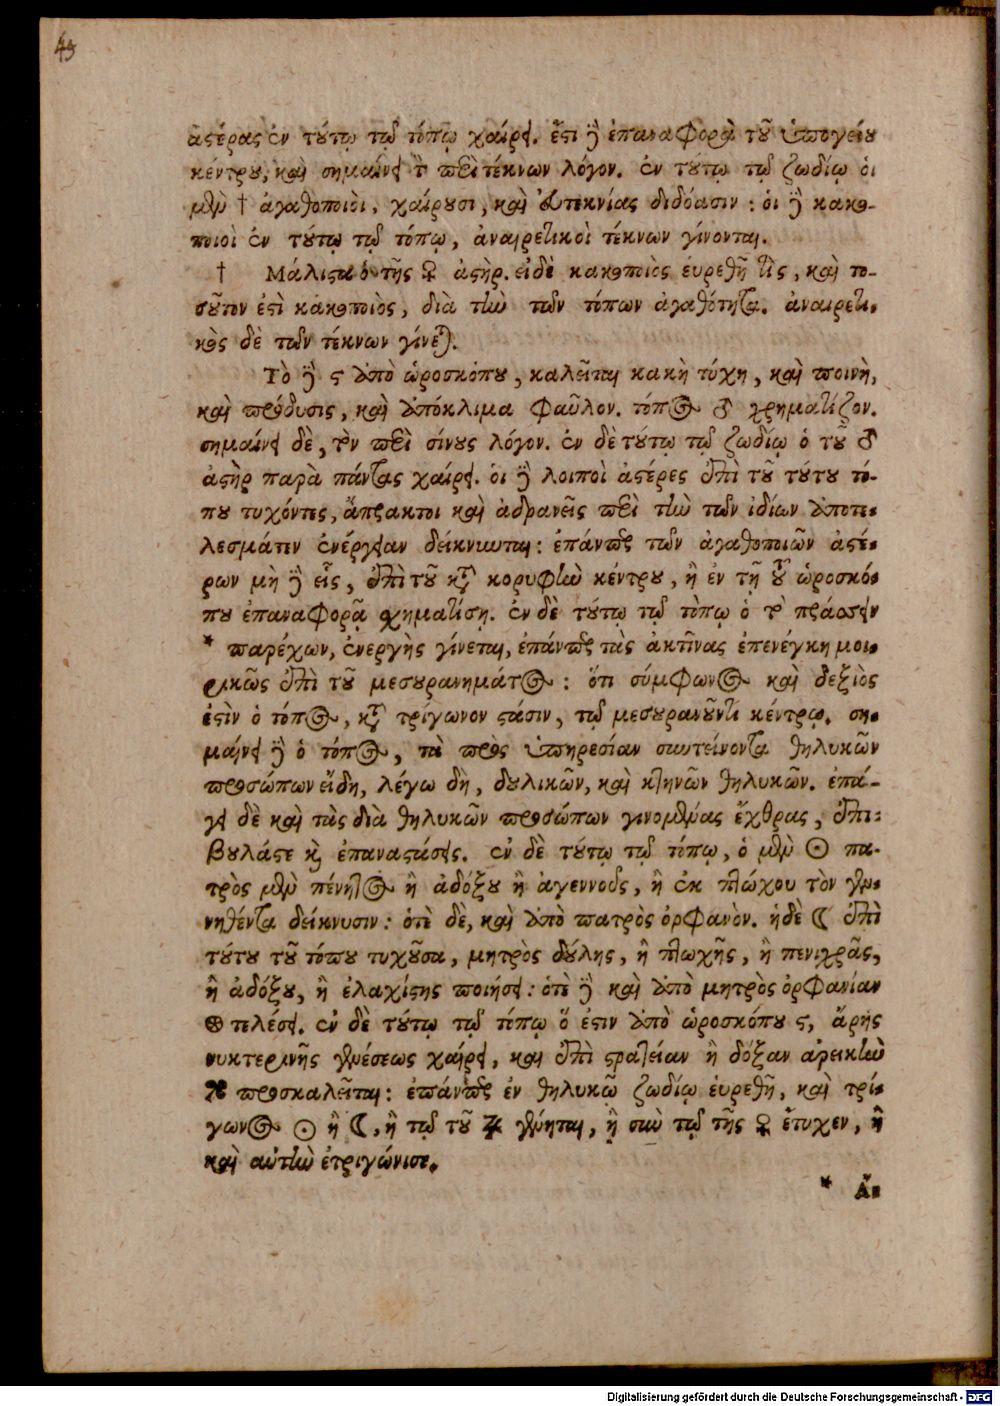 49
ἀστέρας ἐν τούτῳ τῷ τόπῳ χαίρει. ἔστι γὰρ ἐπαναφορὰ τοῦ ὑπογείου
κέντρου, καὶ σημαίνει τὸν περὶ τέκνων λόγον. ἐν τούτῳ τῷ ζωδίῳ οἱ
μὲν † ἀγαθοποιοὶ, χαίρουσι, καὶ εὐτεκνίας διδόασιν : οἱ γὰρ κακο-
ποιοὶ ἐν τούτῳ τῷ τόπῳ, ἀναιρετικοὶ τέκνων γίνονται.
† Μάλιστα ὁ τῆς ♀ ἀστὴρ. εἰ δὲ κακοποιὸς εὑρεθῇ τὶς, καὶ το-
σοῦτον ἐστὶ κακοποιὸς, διὰ τὴν τῶν τόπων ἀγαθότητα. ἀναιρετι-
κὸς δὲ τῶν τέκνων γίνεται.
Τὸ γὰρ ϛ ἀπὸ ὡροσκόπου, καλεῖται κακὴ τύχη, καὶ ποινὴ,
καὶ πρόδυσις, καὶ ἀπόκλιμα φαῦλον. τόπος ♂ χρηματίζον.
σημαίνει δὲ, τὸν περὶ σίνους λόγον. ἐν δὲ τούτῳ τῷ ζωδίῳ ὁ τοῦ ♂
ἀστὴρ παρὰ πάντας χαίρει. οἱ γὰρ λοιποὶ ἀστέρες ἐπὶ τοῦ τούτου τό-
που τυχόντες, ἄπρακτοι καὶ ἀδρανεῖς περὶ τὴν τῶν ἰδίων ἀποτε-
λεσμάτων ἐνέργειαν δείκνυνται : ἐπάντος τῶν ἀγαθοποιῶν ἀστέ-
ρων μὴ γὰρ εἷς, ἐπὶ τοῦ κατὰ κορυφὴν κέντρου, ἢ ἐν τῇ τοῦ ὡροσκό-
που ἐπαναφορᾷ χηματίσῃ. ἐν δὲ τούτῳ τῷ τόπῳ ὁ τὸ πράσσειν
* παρέχων, ἐνεργὴς γίνεται, ἐπάντος τὰς ἀκτῖνας ἐπενέγκῃ μοι-
ρικῶς ἐπὶ τοῦ μεσουρανημάτος : ὅτι σύμφωνος καὶ δεξιὸς
ἐστὶν ὁ τόπος, κατὰ τρίγωνον στάσιν, τῷ μεσουρανοῦντι κέντρῳ. ση-
μαίνει γὰρ ὁ τόπος, τὰ πρὸς ὑπηρεσίαν συντείνοντα θηλυκῶν
προσώπων εἴδη, λέγω δὴ, δουλικῶν, καὶ κτηνῶν θηλυκῶν. ἐπά-
γει δὲ καὶ τὰς διὰ θηλυκῶν προσώπων γινομένας ἔχθρας, ἐπι-
βουλάς τε καὶ ἐπαναστάσεις. ἐν δὲ τούτῳ τῷ τόπῳ, ὁ μὲν ☉ πα-
τρὸς μὲν πένητος ἢ ἀδόξου ἢ ἀγεννοῦς, ἢ ἐκ πτώχου τὸν γεν-
νηθέντα δείκνυσιν : ὁτὲ δὲ, καὶ ἀπὸ πατρὸς ὀρφανὸν. ἡδὲ ☾ ἐπὶ
τούτου τοῦ τόπου τυχοῦσα, μητρὸς δούλης, ἢ πτωχῆς, ἢ πενιχρᾶς,
ἢ ἀδόξου, ἢ ἐλαχίστης ποιήσει : ὁτὲ γὰρ καὶ ἀπὸ μητρὸς ὀρφανίαν
⊕ τελέσει. ἐν δὲ τούτῳ τῷ τόπῳ ὅ ἐστιν ἀπὸ ὡροσκόπου ϛ, ἄρης
νυκτερινῆς γενέσεως χαίρει, καὶ ἐπὶ στρατείαν ἢ δόξαν ἀρεικὴν
⌘ προσκαλεῖται : ἐπάντος ἐν θηλυκῷ ζωδίῳ εὑρεθῇ, καὶ τρί-
γωνος ☉ ἢ ☾, ἢ τῷ τοῦ ♃ γένηται, ἢ σὺν τῷ τῆς ♀ ἔτυχεν, ἢ
καὶ αὐτὴν ἐτριγώνισε.
* Ἀ-
Digitalisierung gefördert durch die Deutsche Forschungsgemeinschaft - DFG